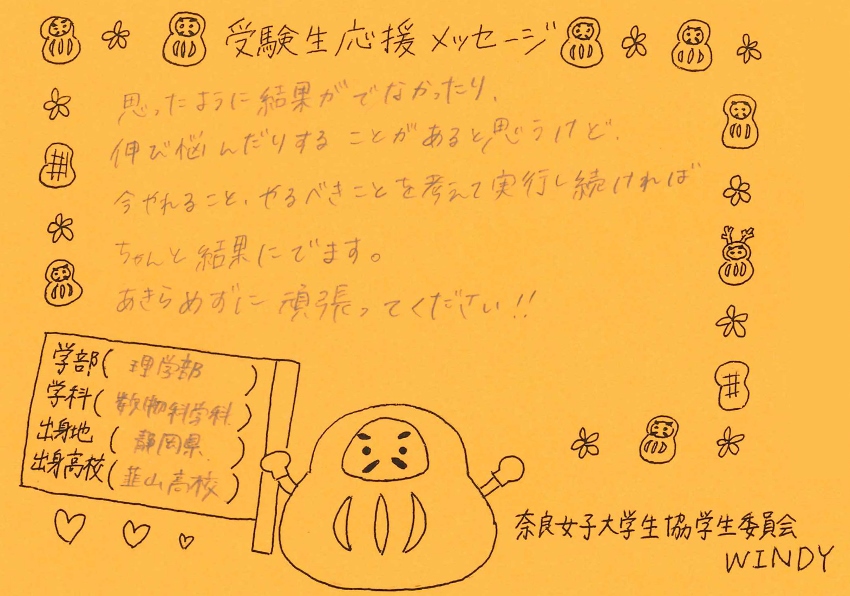 受験生応援メッセージ
思ったように結果がでなかったり、
伸び悩んだりすることがあると思うけど、
今やれること、やるべきことを考えて実行し続ければ
ちゃんと結果にでます。
あきらめずに頑張ってください!!
学部(理学部)
学科(数物科学科)
出身地(静岡県)
出身高校(韮山高校)
奈良女子大学生協学生委員会
WINDY